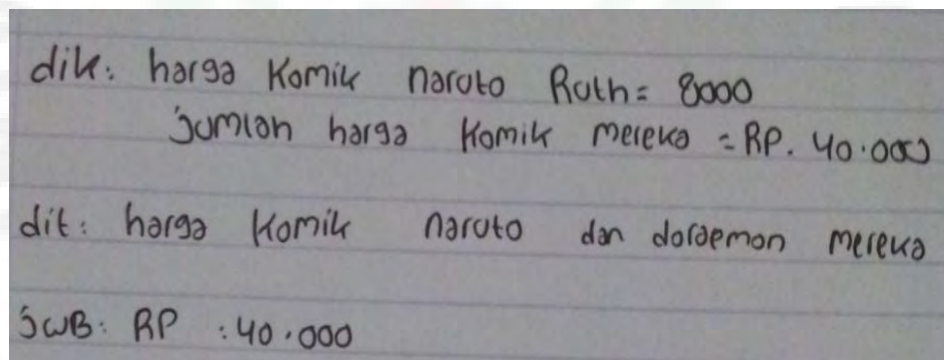 dik: harga Komik naruto Ruth= 8000
jumlah harga Komik mereka = RP. 40.000
dit: harga Komik naruto dan doraemon mereka
jwB: RP :40.000